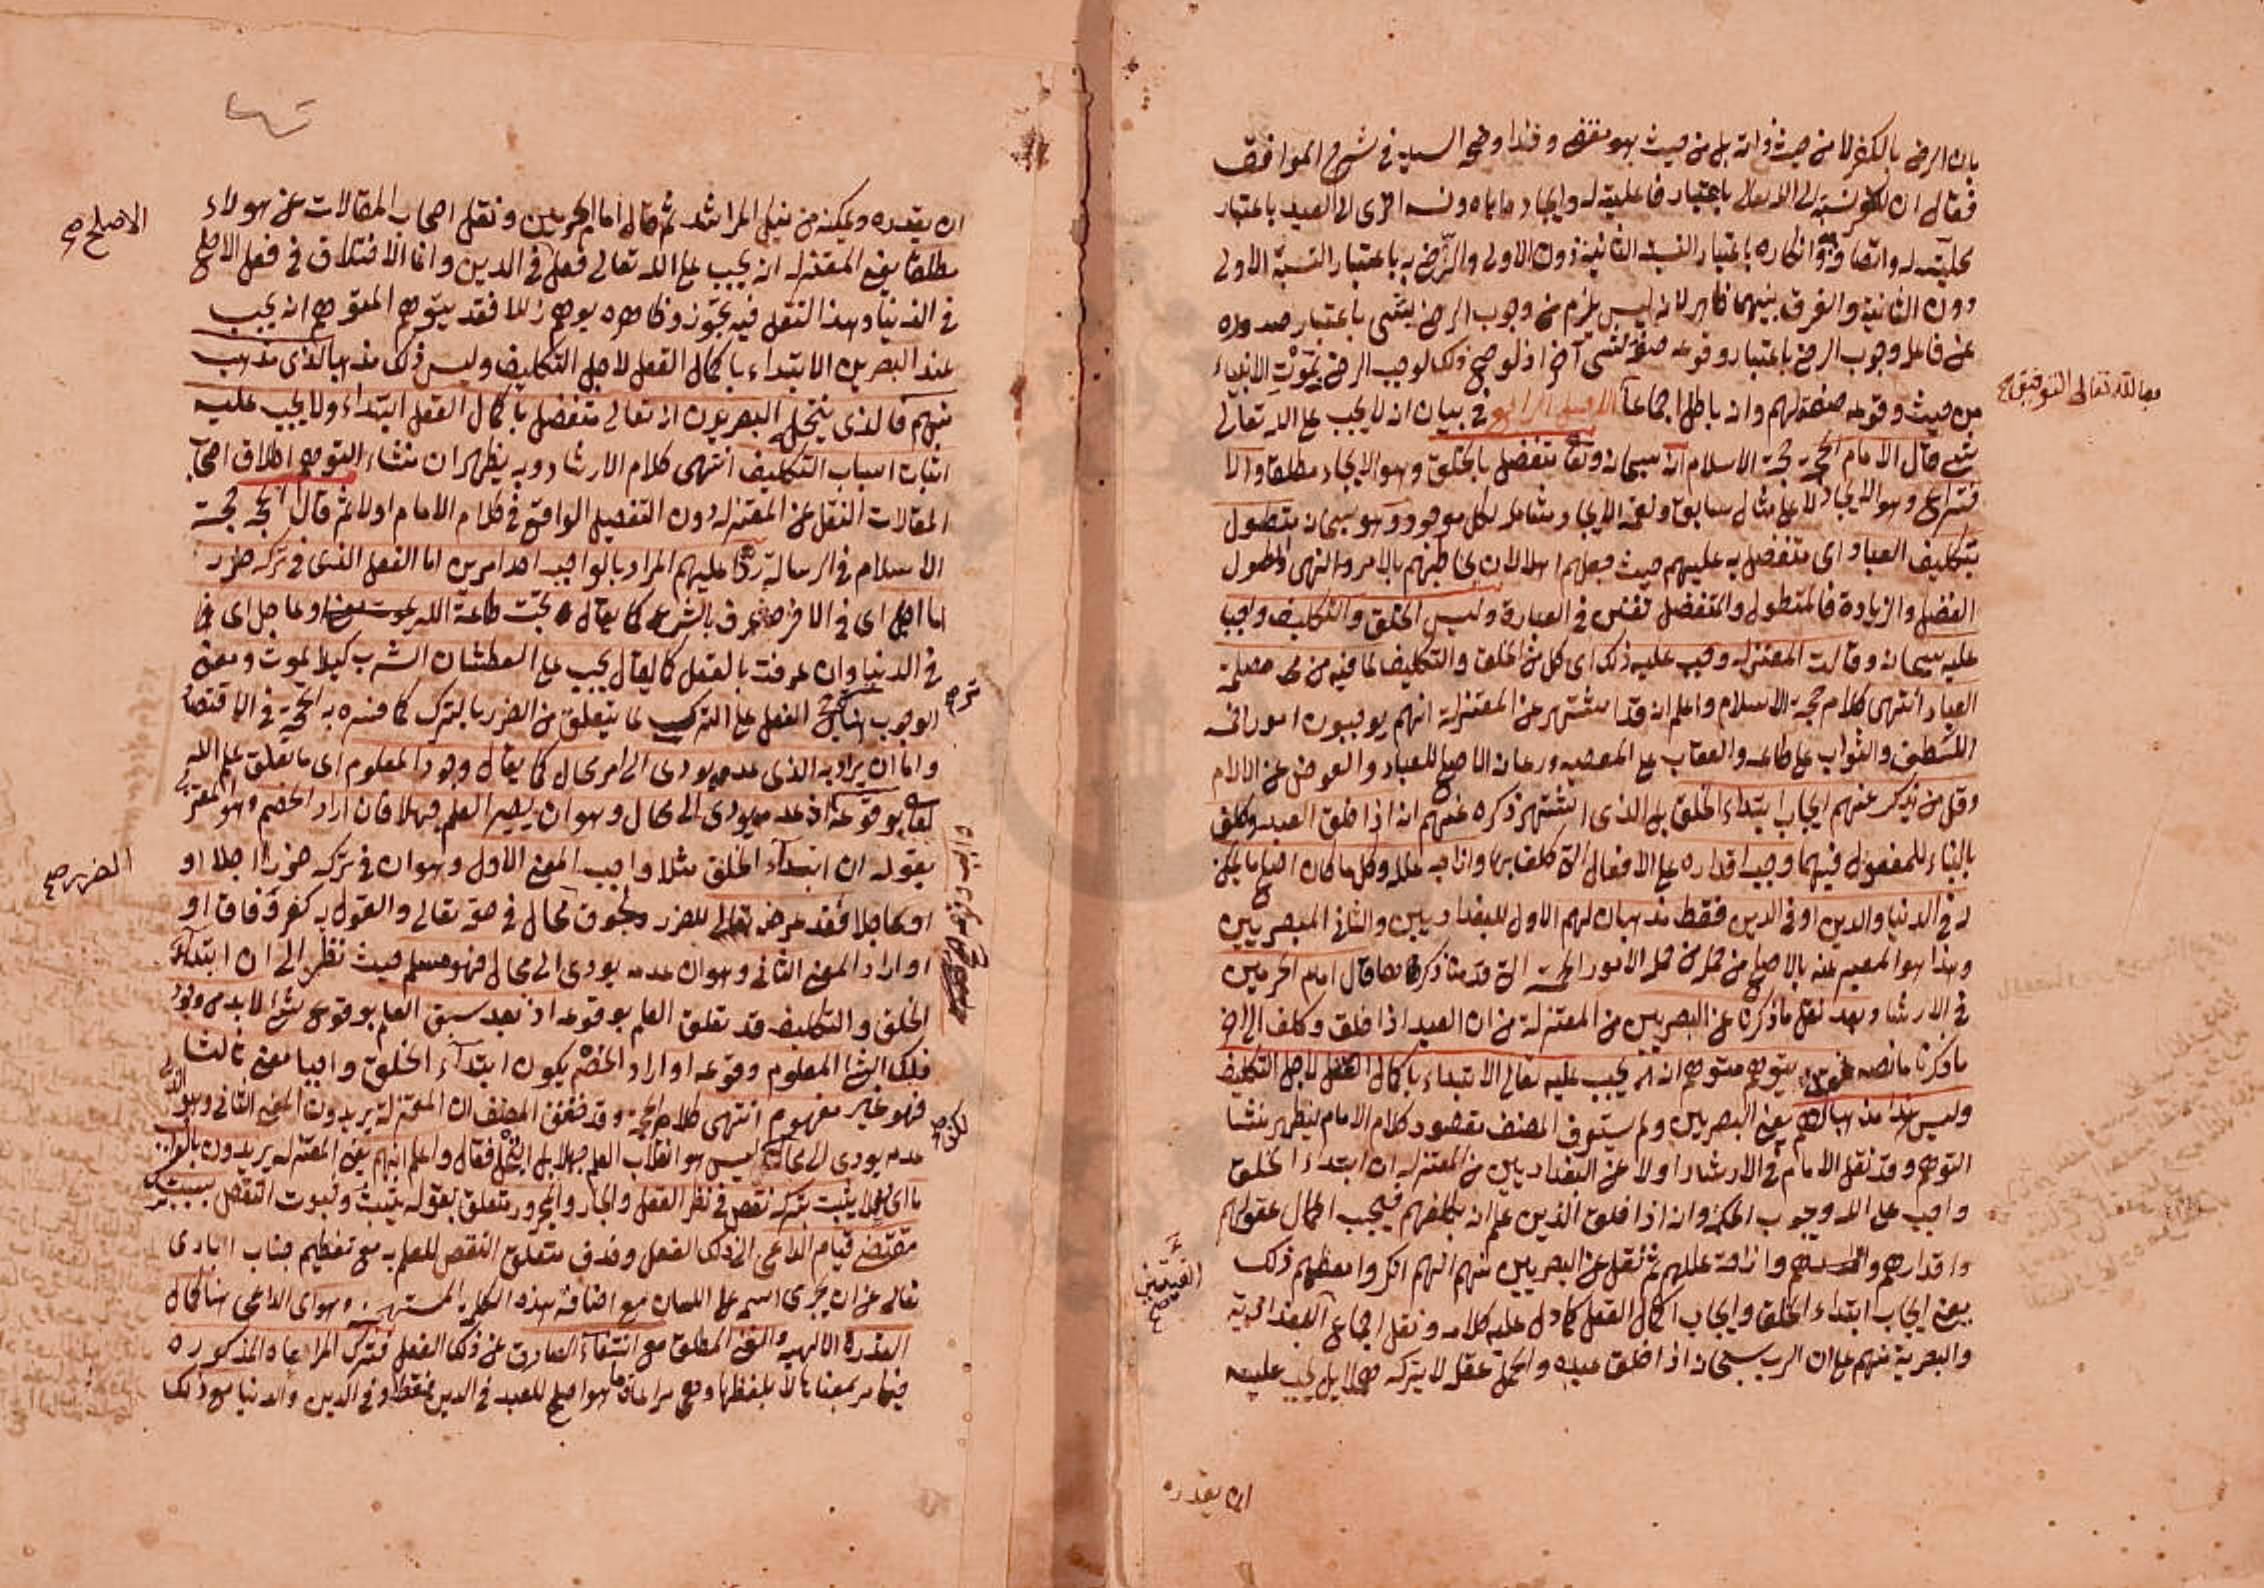 بان الرضى بالكفر لا من حيث ذاته بل من حيث هو مقضي وقد اوضحه السيد في شرح المواقف
فقال ان للكفر نسبة الى الله تعالى باعتبار فاعليته له وايجاده اياه ونسبة اخرى الى العبد باعتبار
محليته له واتصافه به وانكاره باعتبار النسبة الثانية دون الاولى والرضى به باعتبار النسبة الاولى
دون الثانية والفرق بينهما ظاهر لانه ليس يلزم من وجوب الرضى بشيء باعتبار صدوره
عن فاعله وجوب الرضى باعتبار وقوعه صفة لشيء آخر اذ لو صح ذلك لوجب الرضى بموت الانبياء
من حيث وقوعه صفة لهم وانه باطل اجماعا الاصل الرابع في بيان انه لا يجب على الله تعالى
شيء قال الامام الحجة حجة الاسلام انه سبحانه وتعالى متفضل بالخلق وهو الايجاد مطلقا والا
ختراع وهو الايجاد لا على مثال سابق ونعمة الايجاد شاملة لكل موجود وهو سبحانه متطول
بتكليف العباد اى متفضل به عليهم حيث جعلهم اهلا لان يخاطبهم بالامر والنهي والطول
الفضل والزيادة فالمتطول والمتفضل تفنن في العبارة وليس الخلق والتكليف واجبا
عليه سبحانه وقالت المعتزلة وجب عليه ذلك اى كل من الخلق والتكليف لما فيه من مصلحة
العباد انتهى كلام حجة الاسلام واعلم انه قد اشتهر عن المعتزلة انهم يوجبون امورا في
اللطف والثواب على الطاعة والعقاب على المعصية ورعاية الاصلح للعباد والعوض عن الالام
وقل من يذكر عنهم ايجاب ابتداء الخلق بل الذى اشتهر ذكره عنهم انه اذا خلق العبد وكلف
بالبناء للمفعول فيهما وجب اقداره على الافعال التي كلف بها وازاحة علله وكل ما كان اصلح ما يمكن
له في الدنيا والدين او في الدين فقط مذهبان لهم الاول للبغداديين والثاني للبصريين
وهذا هو المعبر عنه بالاصلح من جملة الامور الخمسة التي قدمنا ذكرها قال امام الحرمين
في الارشاد وبعد نقل ما ذكرنا عن البصريين من المعتزلة من ان العبد اذا خلق وكلف الى اخر
ما ذكرنا ما نصه يتوهم متوهم انه يجب عليه تعالى الابتداء باكمال العقل لاجل التكليف
وليس هذا مذهبا لهم يعني البصريين ولم يستوف المصنف مقصود كلام الامام ليظهر منشا
التوهم وقد نقل الامام في الارشاد اولا عن البغداديين من المعتزلة ان ابتداء الخلق
واجب على الله وجوب الحكمة وانه اذا خلق الذين علم انه يكلفهم فيجب اكمال عقولهم
واقدارهم وازاحة عللهم ثم نقل عن البصريين منهم انهم انكروا معظم ذلك
يعني ايجاب ابتداء الخلق وايجاب اكمال العقل كما دل عليه كلامه ونقل اجماع البغدادية
والبصرية منهم على ان الرب سبحانه اذا خلق عبده واكمل عقله لا يتركه هملا بل يجب عليه
ان يقدره
مع الله تعالى التوفيق صح
ان يقدره ويمكنه من نيل المراشد ثم قال امام الحرمين ونقل اصحاب المقالات عن هولاء
مطلقا يعني المعتزلة انه يجب على الله تعالى فعل في الدين وانما الاختلاف في فعل الاصلح
في الدنيا وهذا النقل فيه تجوز وظاهره يوهم زللا فقد يتوهم المتوهم انه يجب
عند البصريين الابتداء باكمال العقل لاجل التكليف وليس ذلك مذهبا لذى مذهب
منهم فالذى ينتحله البصريون انه تعالى متفضل باكمال العقل ابتداء ولا يجب عليه
اثبات اسباب التكليف انتهى كلام الارشاد وبه يظهر ان منشاء التوهم اطلاق اصحاب
المقالات النقل عن المعتزلة دون التفصيل الواقع في كلام الامام اولا ثم قال الحجة حجة
الاسلام في الرسالة ردا عليهم المراد بالواجب احد امرين اما الفعل الذى في تركه ضرر
اما اجل اى في الاخرة عرف بالشرع كما يقال يجب طاعة الله او عاجل اى
في الدنيا وان عرفت بالعقل كما يقال يجب على العطشان الشرب كيلا يموت ومعنى
الوجوب هنا ترجح الفعل على الترك لما يتعلق من الضرر بالترك كما فسره به الحجة في الاقتصاد
واما ان يراد به الذى عدمه يودى الى امر محال كما يقال وجود المعلوم اى ما تعلق علم الله
تعالى بوقوعه اذ عدمه يودى الى محال وهو ان يصير العلم جهلا فان اراد الخصم وهو المعتزلي
بقوله ان ابتداء الخلق مثلا واجب المعنى الاول وهو ان في تركه ضررا اجلا او
او عاجلا فقد عرضه تعالى للضرر ولحوق محال في حقه تعالى والقول به كفر وفاقا او
او اراد المعنى الثاني وهو ان عدمه يودى الى محال فهو مسلم حيث نظر الى ان ابتداء
الخلق والتكليف قد تعلق العلم بوقوعه اذ بعد سبق العلم بوقوع شئ لابد من وقوع
ذلك الشئ المعلوم وقوعه او اراد الخصم بكون ابتداء الخلق واجبا معنى ثالثا
فهو غير مفهوم انتهى كلام الحجة وقد حقق المصنف ان المعتزلة يريدون المعنى الثاني وهو الذى
عدمه يودى الى محال ليس هو انقلاب العلم جهلا بل البخل فقال واعلم انهم يعني المعتزلة يريدون بالواجب
ما يثبت بتركه نقص في نظر العقل والجار والمجرور متعلق بقوله يثبت وثبوت النقص بسبب ترك
مقتضى قيام الداعي الى ذلك الفعل وحذف متعلق النقص للعلم به مع تعظيم جناب البارى
تعالى عن ان يجرى اسمه على اللسان مع اضافة هذه الكلمة وهو اى الداعى هنا كمال
القدرة الالهية والغنى المطلق مع انتفاء الصارف عن ذلك الفعل فترك المراعاة المذكورة
فيما مر بمعناها لا بلفظها وهي مراعاة ما هو اصلح للعبد في الدين فقط او في الدين والدنيا مع ذلك
الاصلح صح
الضرر صح
لكن صح